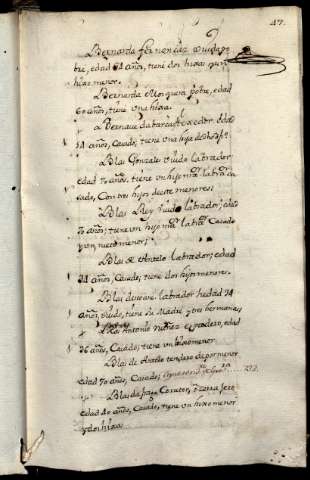 47.
Bernarda fernandez viuda po
bre, edad 54 años, tiene dos hixas y un
hixo menor.
Bernarda Mosquera pobre, edad
60 años, tiene una hixa.
Bernave da barca texedor edad
54 años, Casado, tiene una hija
Blas Gonzalez Viudo labrador
edad 70 años, tiene un hijo mor labrar ca
sado, Con tres hijos de este menores;
Blas Rey Viudo labrador; edad
70 años; tiene un hijo mor labrar Casado
y un nieto menor;
Blas de Antelo labrador; edad
54 años, Casado, tiene dos hijos menores.
Blas labrador hedad 34
años, Viudo, tiene su Madre y tres hermanas
Blas Antonio nuñez edad
36 años, Casado; tiene un hixo menor
Blas de tendero de por menor
edad 50 años, Casado,
Blas da
edad 40 años, Casado, tiene un hixo menor
y dos hixas